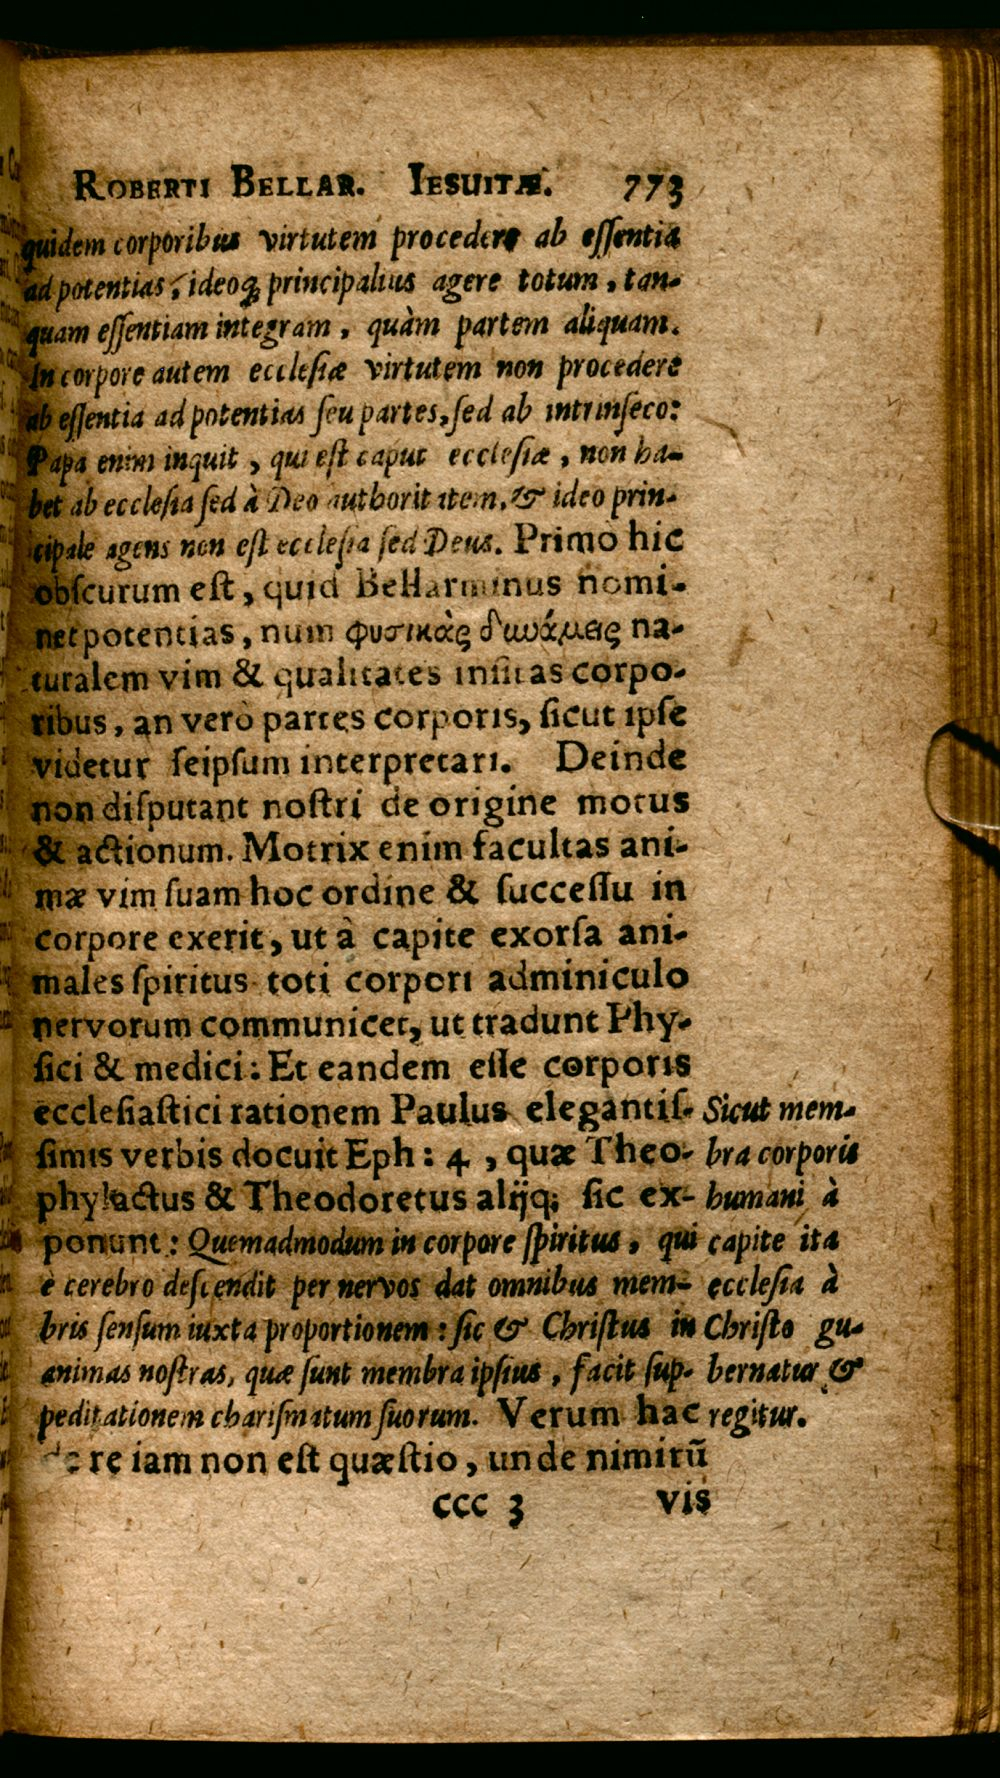 ROBERTI BELLAR. IESUITÆ. 773
quidem corporibus virtutem procedere ab essentia
ad potentias, ideoq́; principalius agere totum, tan-
quam essentiam integram, quàm partem aliquam.
In corpore autem ecclesiæ virtutem non procedere
ab essentia ad potentias seu partes, sed ab intrinseco:
Papa enim inquit, qui est caput ecclesiæ, non ha-
bet ab ecclesia sed à Deo authoritatem, & ideo prin-
cipale agens non est ecclesia sed Deus. Primò hic
obscurum est, quid Bellarminus nomi-
net potentias, num φυσικὰς δυνάμεις na-
turalem vim & qualitates insitas corpo-
ribus, an verò partes corporis, sicut ipse
videtur seipsum interpretari. Deinde
non disputant nostri de origine motus
& actionum. Motrix enim facultas ani-
mæ vim suam hoc ordine & successu in
corpore exerit, ut à capite exorsa ani-
males spiritus toti corpori adminiculo
nervorum communicet, ut tradunt Phy-
sici & medici: Et eandem esse corporis
ecclesiastici rationem Paulus elegantis-
simis verbis docuit Eph: 4, quæ Theo-
phylactus & Theodoretus alijq; sic ex-
ponunt: Quemadmodum in corpore spiritus, qui
e cerebro descendit per nervos dat omnibus mem-
bris sensum iuxta proportionem: sic & Christus in
animas nostras, quæ sunt membra ipsius, facit sup-
peditationem charismatum suorum. Verum hac
de re iam non est quæstio, unde nimirũ
Sicut mem-
bra corporis
humani à
capite ita
ecclesia à
Christo gu-
bernatur &
regitur.
CCC 3 vis